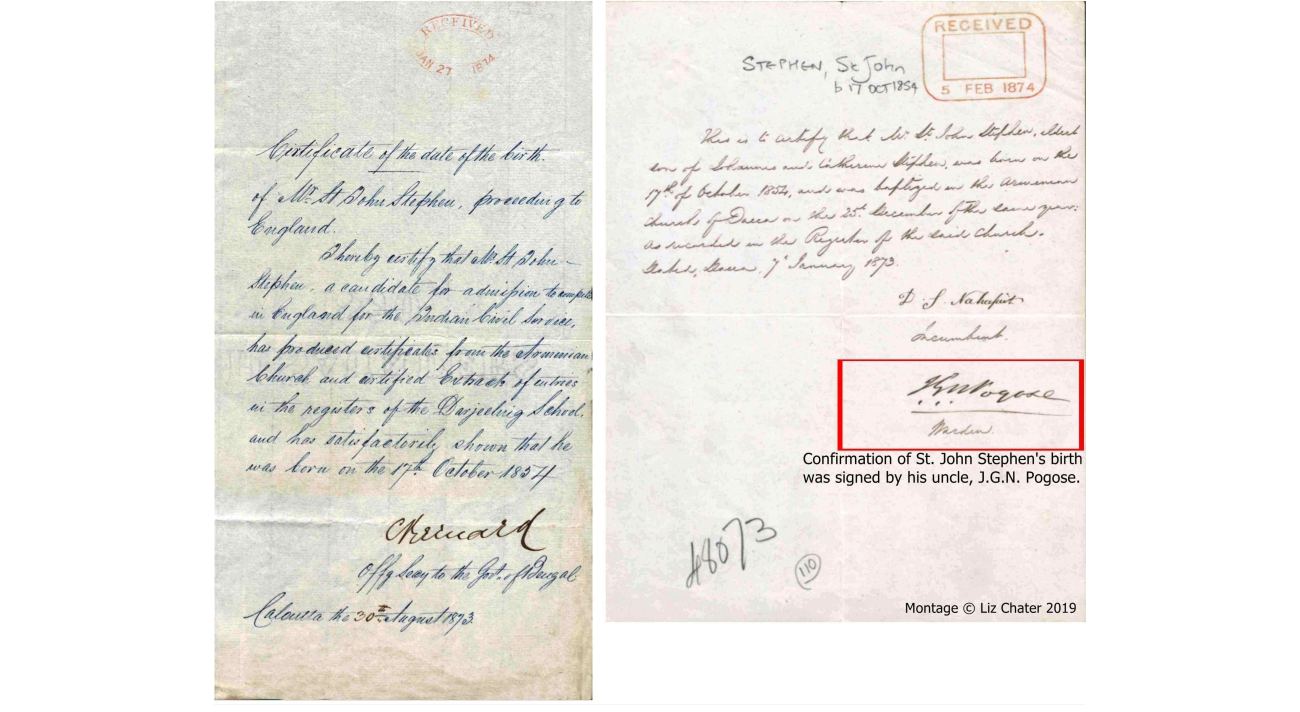 RECEIVED
JAN 27 1874
Certificate of the date of the birth
of Mr. St John Stephen, proceeding to
England.
I hereby certify that Mr. St John
Stephen, a candidate for admission to compete
in England for the Indian Civil Service,
has produced certificates from the Armenian
Church and certified Extract of entries
in the registers of the Darjeeling School,
and has satisfactorily shown that he
was born on the 17th October 1854
CBernard
Offg Secy to the Govt. of Bengal
Calcutta the 30th August 1873
RECEIVED
5 FEB 1874
STEPHEN, St John
b 17 OCT 1854
This is to certify that Mr St John Stephen, eldest
son of Johannes and Catherine Stephen, was born on the
17th of October 1854, and was baptized in the Armenian
Church of Dacca on the 25th December of the same year:
as recorded in the Register of the said Church.
Dated, Dacca, 7th January 1873.
Incumbent.
JGNPogose
Warden
Confirmation of St. John Stephen's birth
was signed by his uncle, J.G.N. Pogose.
48073
110
Montage © Liz Chater 2019